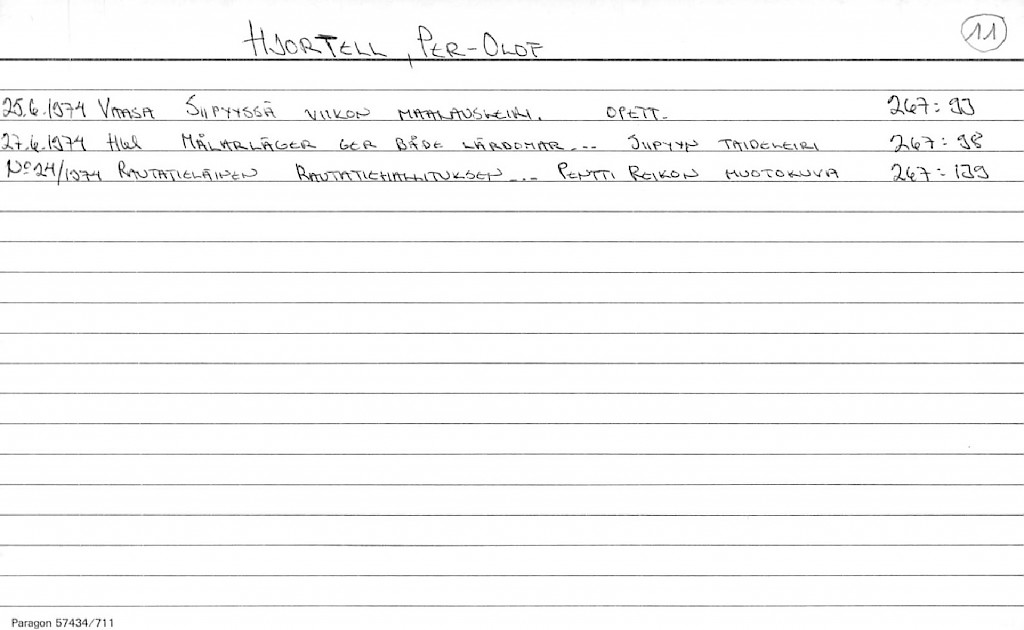 HJORTELL, PER-OLOF
11
25.6.1974 VAASA SIIPYYSSÄ VIIKON MAALAUSLEIRI. OPETT. 267:93
27.6.1974 Hbl MÅLARLÄGER GER BÅDE LÄRDOMAR... SIIPYYN TAIDELEIRI 267:98
No 24/1974 RAUTATIELÄINEN RAUTATIEHALLITUKSEN... PENTTI REIKON MUOTOKUVA 267:199
Paragon 57434/711